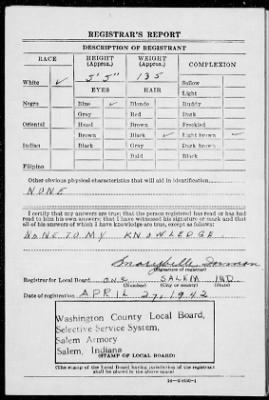 REGISTRAR'S REPORT
DESCRIPTION OF REGISTRANT
RACE HEIGHT (Approx.) WEIGHT (Approx.) COMPLEXION
White ✓ 5' 5" 135 Sallow
EYES HAIR Light
Negro Blue ✓ Blonde Ruddy
Gray Red Dark
Oriental Hazel Brown Freckled
Brown Black ✓ Light brown ✓
Indian Black Gray Dark brown
Bald Black
Filipino
Other obvious physical characteristics that will aid in identification
NONE
I certify that my answers are true; that the person registered has read or has had
read to him his own answers; that I have witnessed his signature or mark and that
all of his answers of which I have knowledge are true, except as follows:
NONE TO MY KNOWLEDGE
(Signature of registrar)
Registrar for Local Board ONE SALEM IND.
(Number) (City or county) (State)
Date of registration APRIL 27, 1942
Washington County Local Board,
Selective Service System,
Salem Armory
Salem, Indiana
(STAMP OF LOCAL BOARD)
(The stamp of the Local Board having jurisdiction of the registrant
shall be placed in the above space)